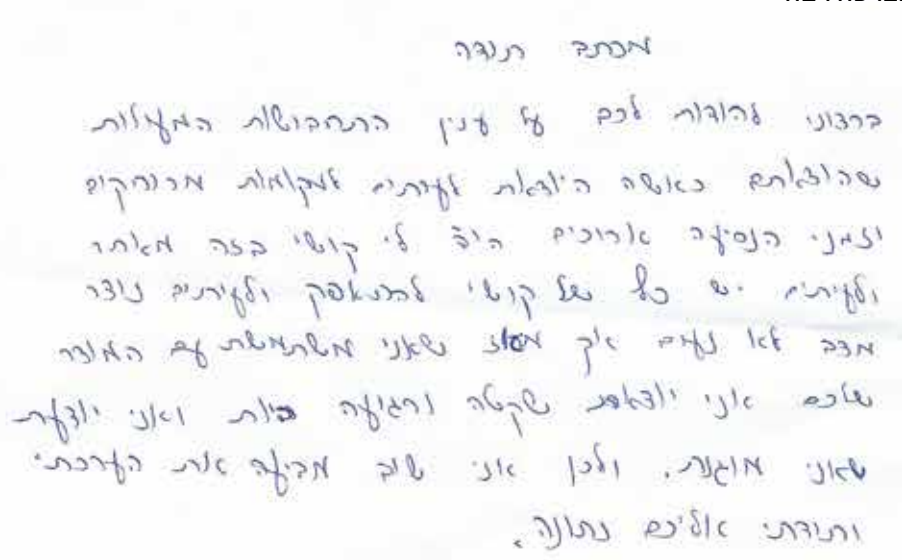 מכתב תודה
ברצוני להודות לכם על ענין התחבושות המעולות
שהוצאתם כאשה היוצאת לעיתים למקומות מרוחקים
וזמני הנסיעה ארוכים היה לי קושי בזה מאתר
ולעיתים יש כל של קושי להתאפק ולעיתים נוצר
מצב לא נעים אך מאז שאני משתמשת עם המוצר
שלכם אני יוצאת שקטה ורגיעה ואני יודעת
שאני מוגנת. ולכן אני שוב מביעה את הערכתי
ותודתי אליכם נתונה.